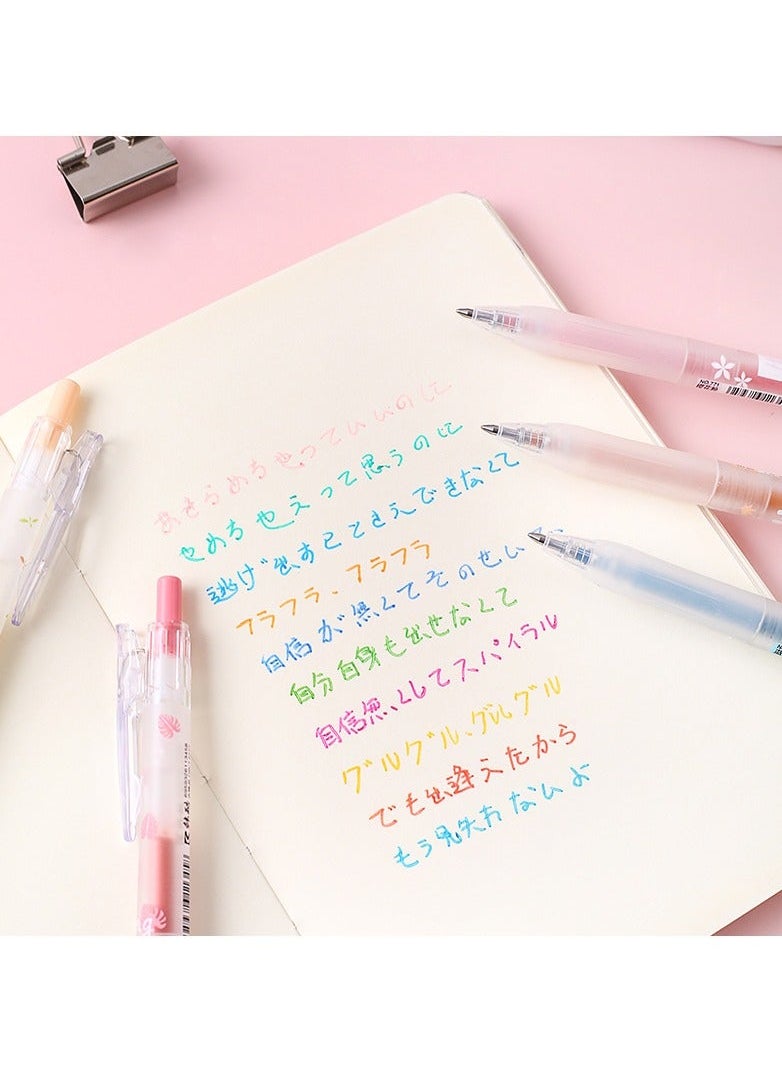 あきらめちゃっていいのに
やめちゃえって思うのに
逃げ出すことさえできなくて
フラフラ、フラフラ
自信が無くてそのせいで
自分自身も出せなくて
自信無くしてスパイラル
グルグル、グルグル
でも出逢えたから
もう見失わないよ
NO.771
6953787113458